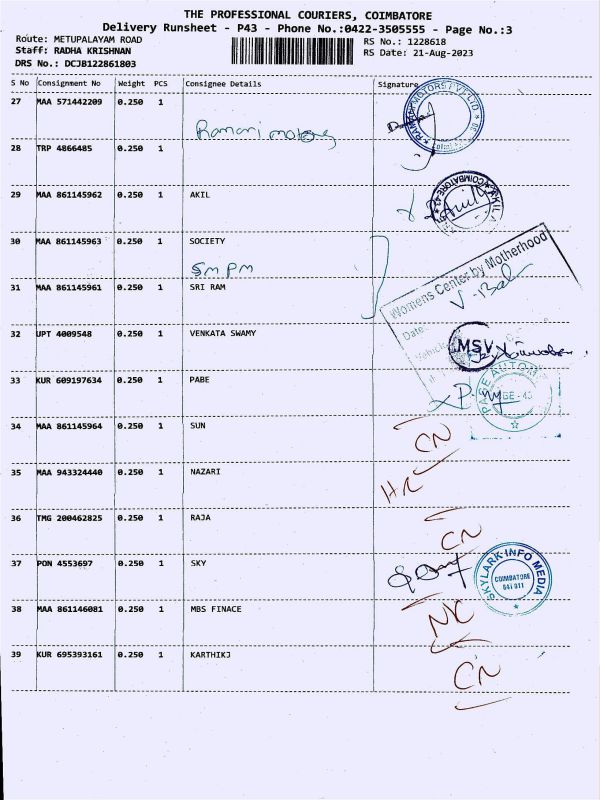 THE PROFESSIONAL COURIERS, COIMBATORE
Delivery Runsheet - P43 - Phone No.:0422-3505555 - Page No.:3
Route: METUPALAYAM ROAD
RS No.: 1228618
Staff: RADHA KRISHNAN
RS Date: 21-Aug-2023
DRS No.: DCJB122861803
S No Consignment No Weight PCS Consignee Details Signature
27 MAA 571442209 0.250 1
28 TRP 4866485 1
29 MAA 861145962 0.250 1 AKIL
30 MAA 861145963 0.250 1 SOCIETY
SMPM
31 MAA 861145961 0.250 1 SRI RAM
Womens Center by Motherhood
Date
32 UPT 4009548 0.250 1 VENKATA SWAMY
MSV
33 KUR 609197634 0.250 1 PABE
34 MAA 861145964 0.250 1 SUN
CN
35 MAA 943324440 0.250 1 NAZARI
36 TMG 200462825 0.250 1 RAJA
CN
37 PON 4553697 0.250 1 SKY
SKYLARK INFO MEDIA
COIMBATORE
641 011
38 MAA 861146081 0.250 1 MBS FINACE
39 KUR 695393161 0.250 1 KARTHIKJ
CN